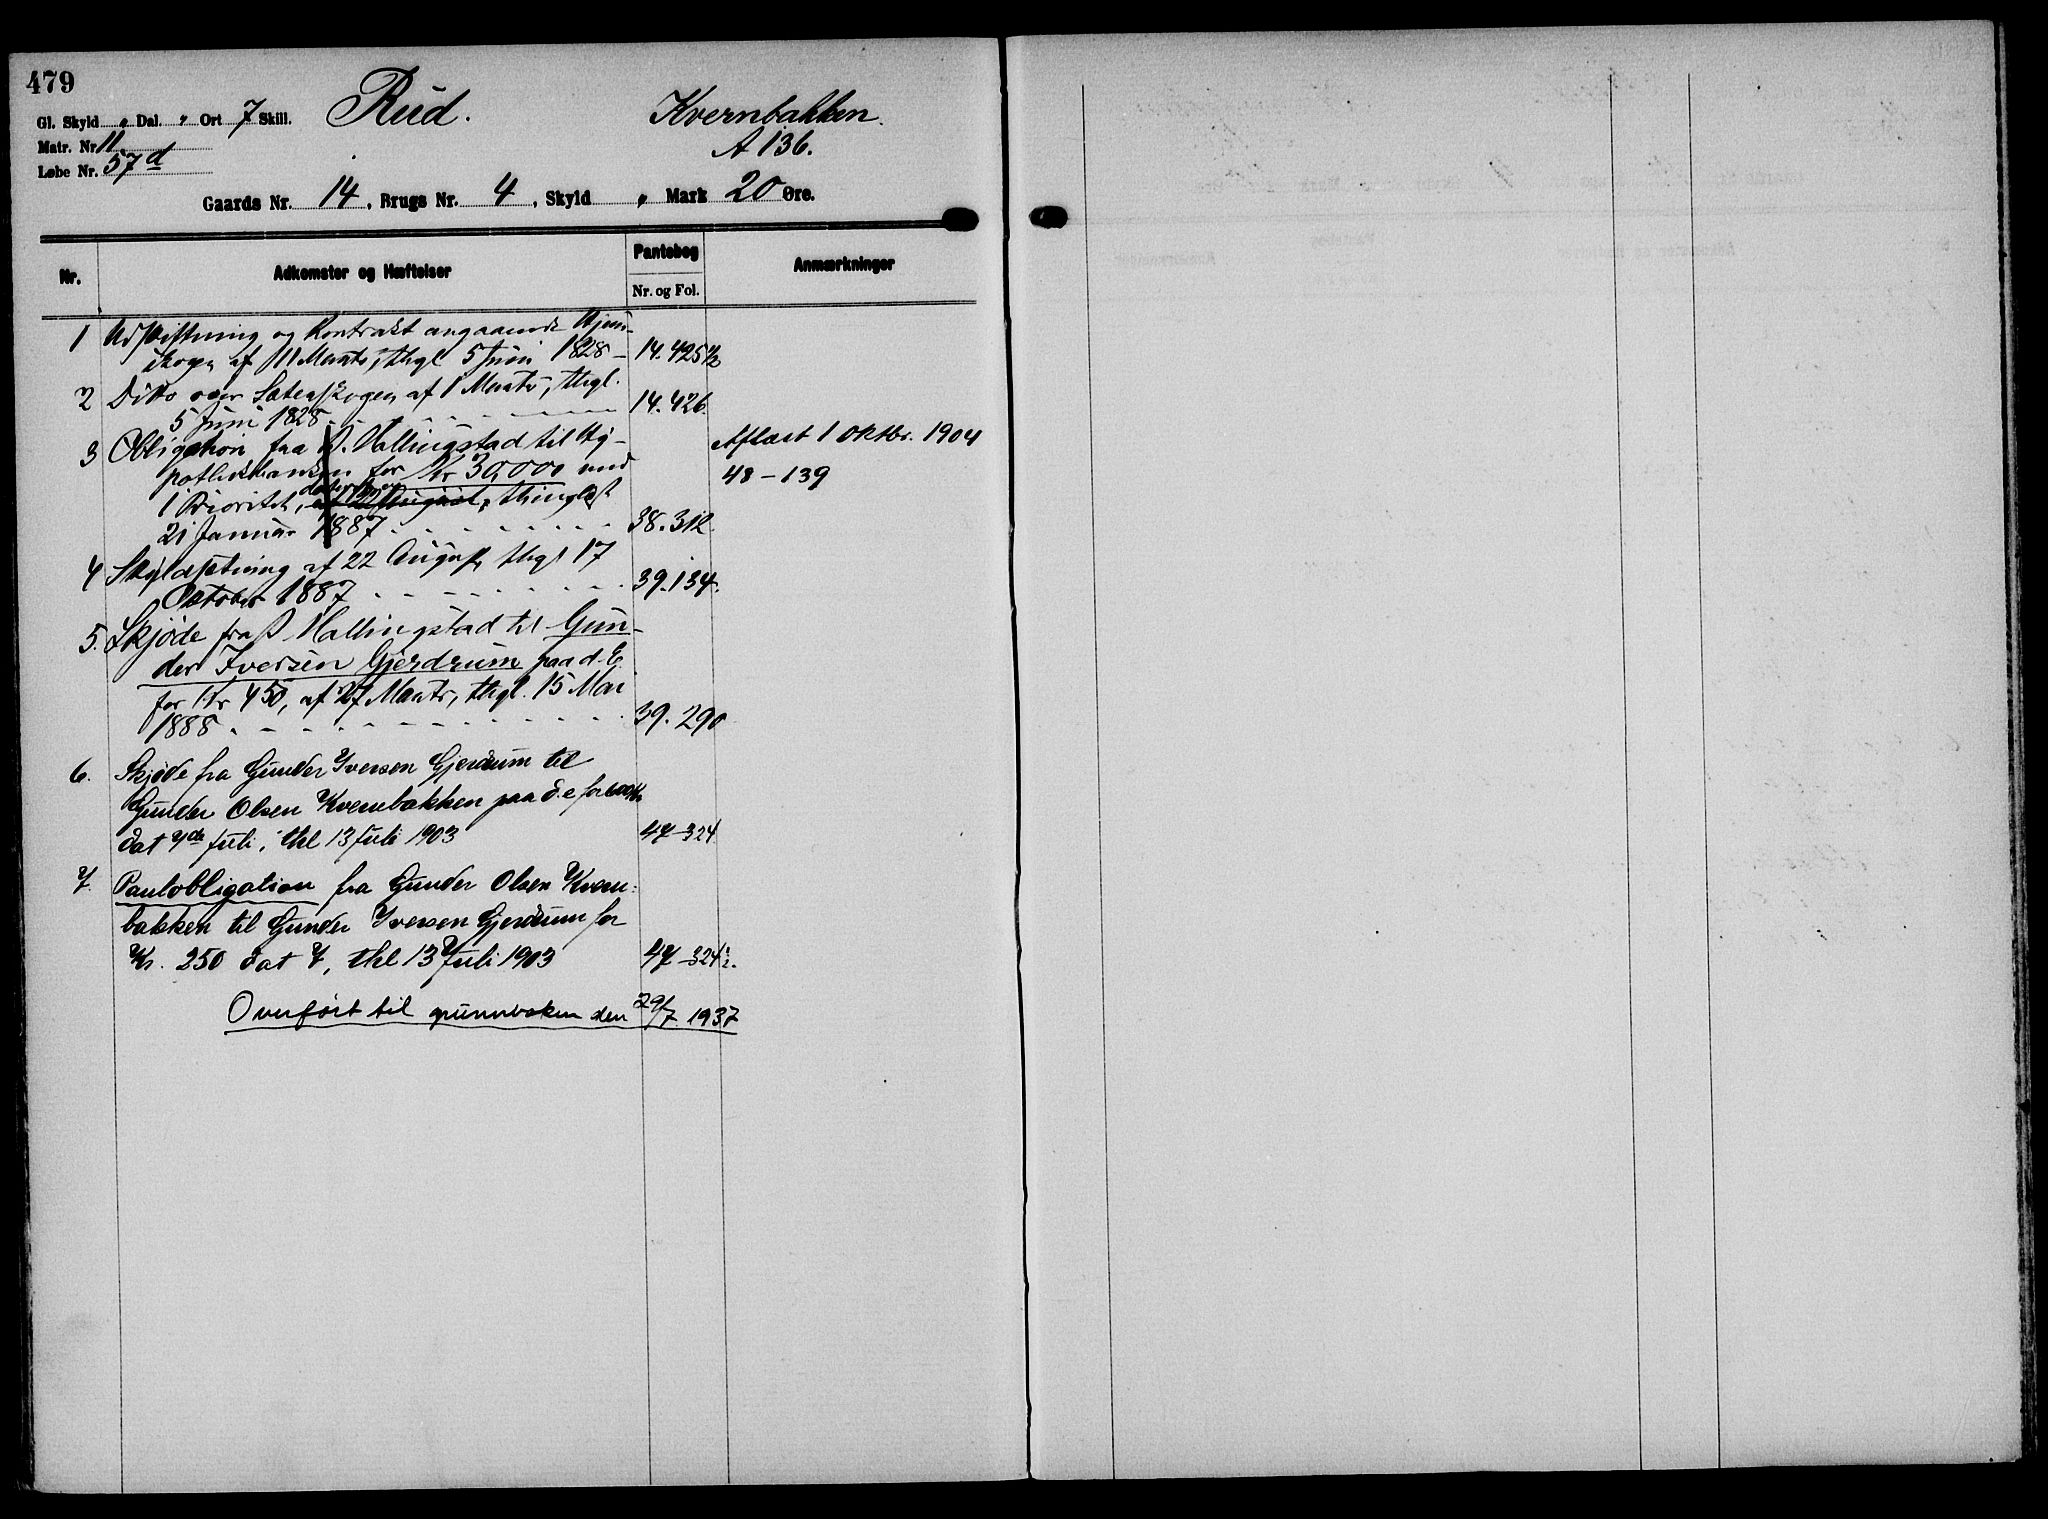 479
Gl. Skyld „ Dal. „ Ort 7 Skill. Rud. Kvernbakken.
Matr. Nr 11 A 136.
Løbe Nr. 57d
Gaards Nr. 14, Brugs Nr. 4, Skyld „ Mark 20 Øre.
Nr. Adkomster og Hæftelser Pantebog Anmærkninger
Nr. og Fol.
1 Udskiftning og Kontrakt angaaende
skogen af 11 Marts, thgl 5 Juni 1828 – 14. 425 1/2
2 Ditto over Sæterskogen af 1 Marts, thgl.
5 Juni 1828 14. 426.
3 Obligation fra Hallingstad til Hy- Aflæst 1 oktbr. 1904
pothekbanken for Kr 30,000 mod 48 – 139
1 Prioritet, thinglæst
21 Januar 1887 38. 312.
4 Skyldsætning af 22 August, thgl 17
October 1887 39. 134.
5. Skjøde fra Hallingstad til Gun-
der Iversen Gjerdrum paa d. E.
for Kr 450, af 27 Marts, thgl. 15 Mai
1888 39. 290
6. Skjøde fra Gunder Iversen Gjerdrum til
Gunder Olsen Kvernbakken paa d. e for 600 Kr
dat 7de Juli, thl 13 Juli 1903 47–324.
7. Pantobligation fra Gunder Olsen Kvern:
bakken til Gunder Iversen Gjerdrum for
Kr. 250 dat 7, thl 13 Juli 1903 47–324 1/2.
Overført til grunnboken den 29/7 1937